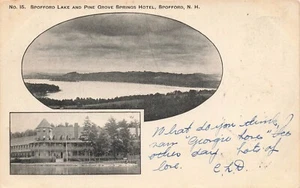 No. 15. SPOFFORD LAKE AND PINE GROVE SPRINGS HOTEL, SPOFFORD, N. H.
What do you think
"Georgie
other day. Lot of
love. C.L.D.